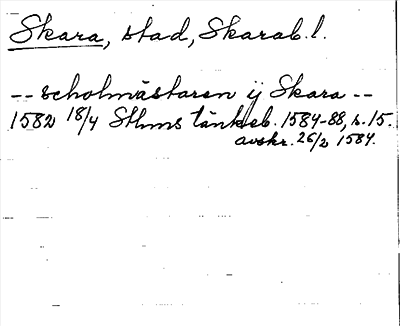 Skara, stad, Skarab.l.
-- scholmästaren ij Skara --
1582 18/4 Sthms tänkeb. 1584-88, s. 15.
avskr. 26/2 1584.